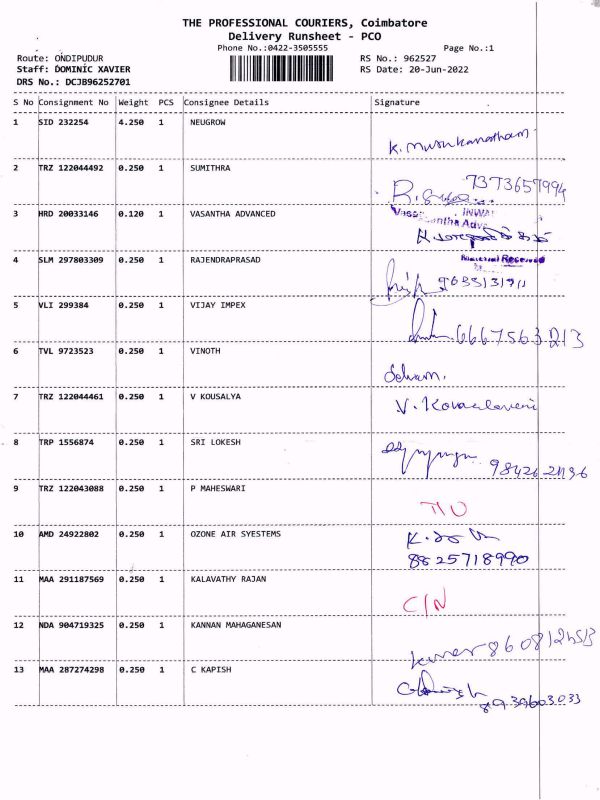 THE PROFESSIONAL COURIERS, Coimbatore
Delivery Runsheet - PCO
Phone No.:0422-3505555 Page No.:1
Route: ONDIPUDUR RS No.: 962527
Staff: DOMINIC XAVIER RS Date: 20-Jun-2022
DRS No.: DCJB96252701
S No Consignment No Weight PCS Consignee Details Signature
1 SID 232254 4.250 1 NEUGROW
2 TRZ 122044492 0.250 1 SUMITHRA
7373657994
3 HRD 20033146 0.120 1 VASANTHA ADVANCED
4 SLM 297803309 0.250 1 RAJENDRAPRASAD
Material Received
5 VLI 299384 0.250 1 VIJAY IMPEX
6667563213
6 TVL 9723523 0.250 1 VINOTH
Selvam.
7 TRZ 122044461 0.250 1 V KOUSALYA
8 TRP 1556874 0.250 1 SRI LOKESH
9 TRZ 122043088 0.250 1 P MAHESWARI
10 AMD 24922802 0.250 1 OZONE AIR SYESTEMS
8825718990
11 MAA 291187569 0.250 1 KALAVATHY RAJAN
C/N
12 NDA 904719325 0.250 1 KANNAN MAHAGANESAN
13 MAA 287274298 0.250 1 C KAPISH
8939603033